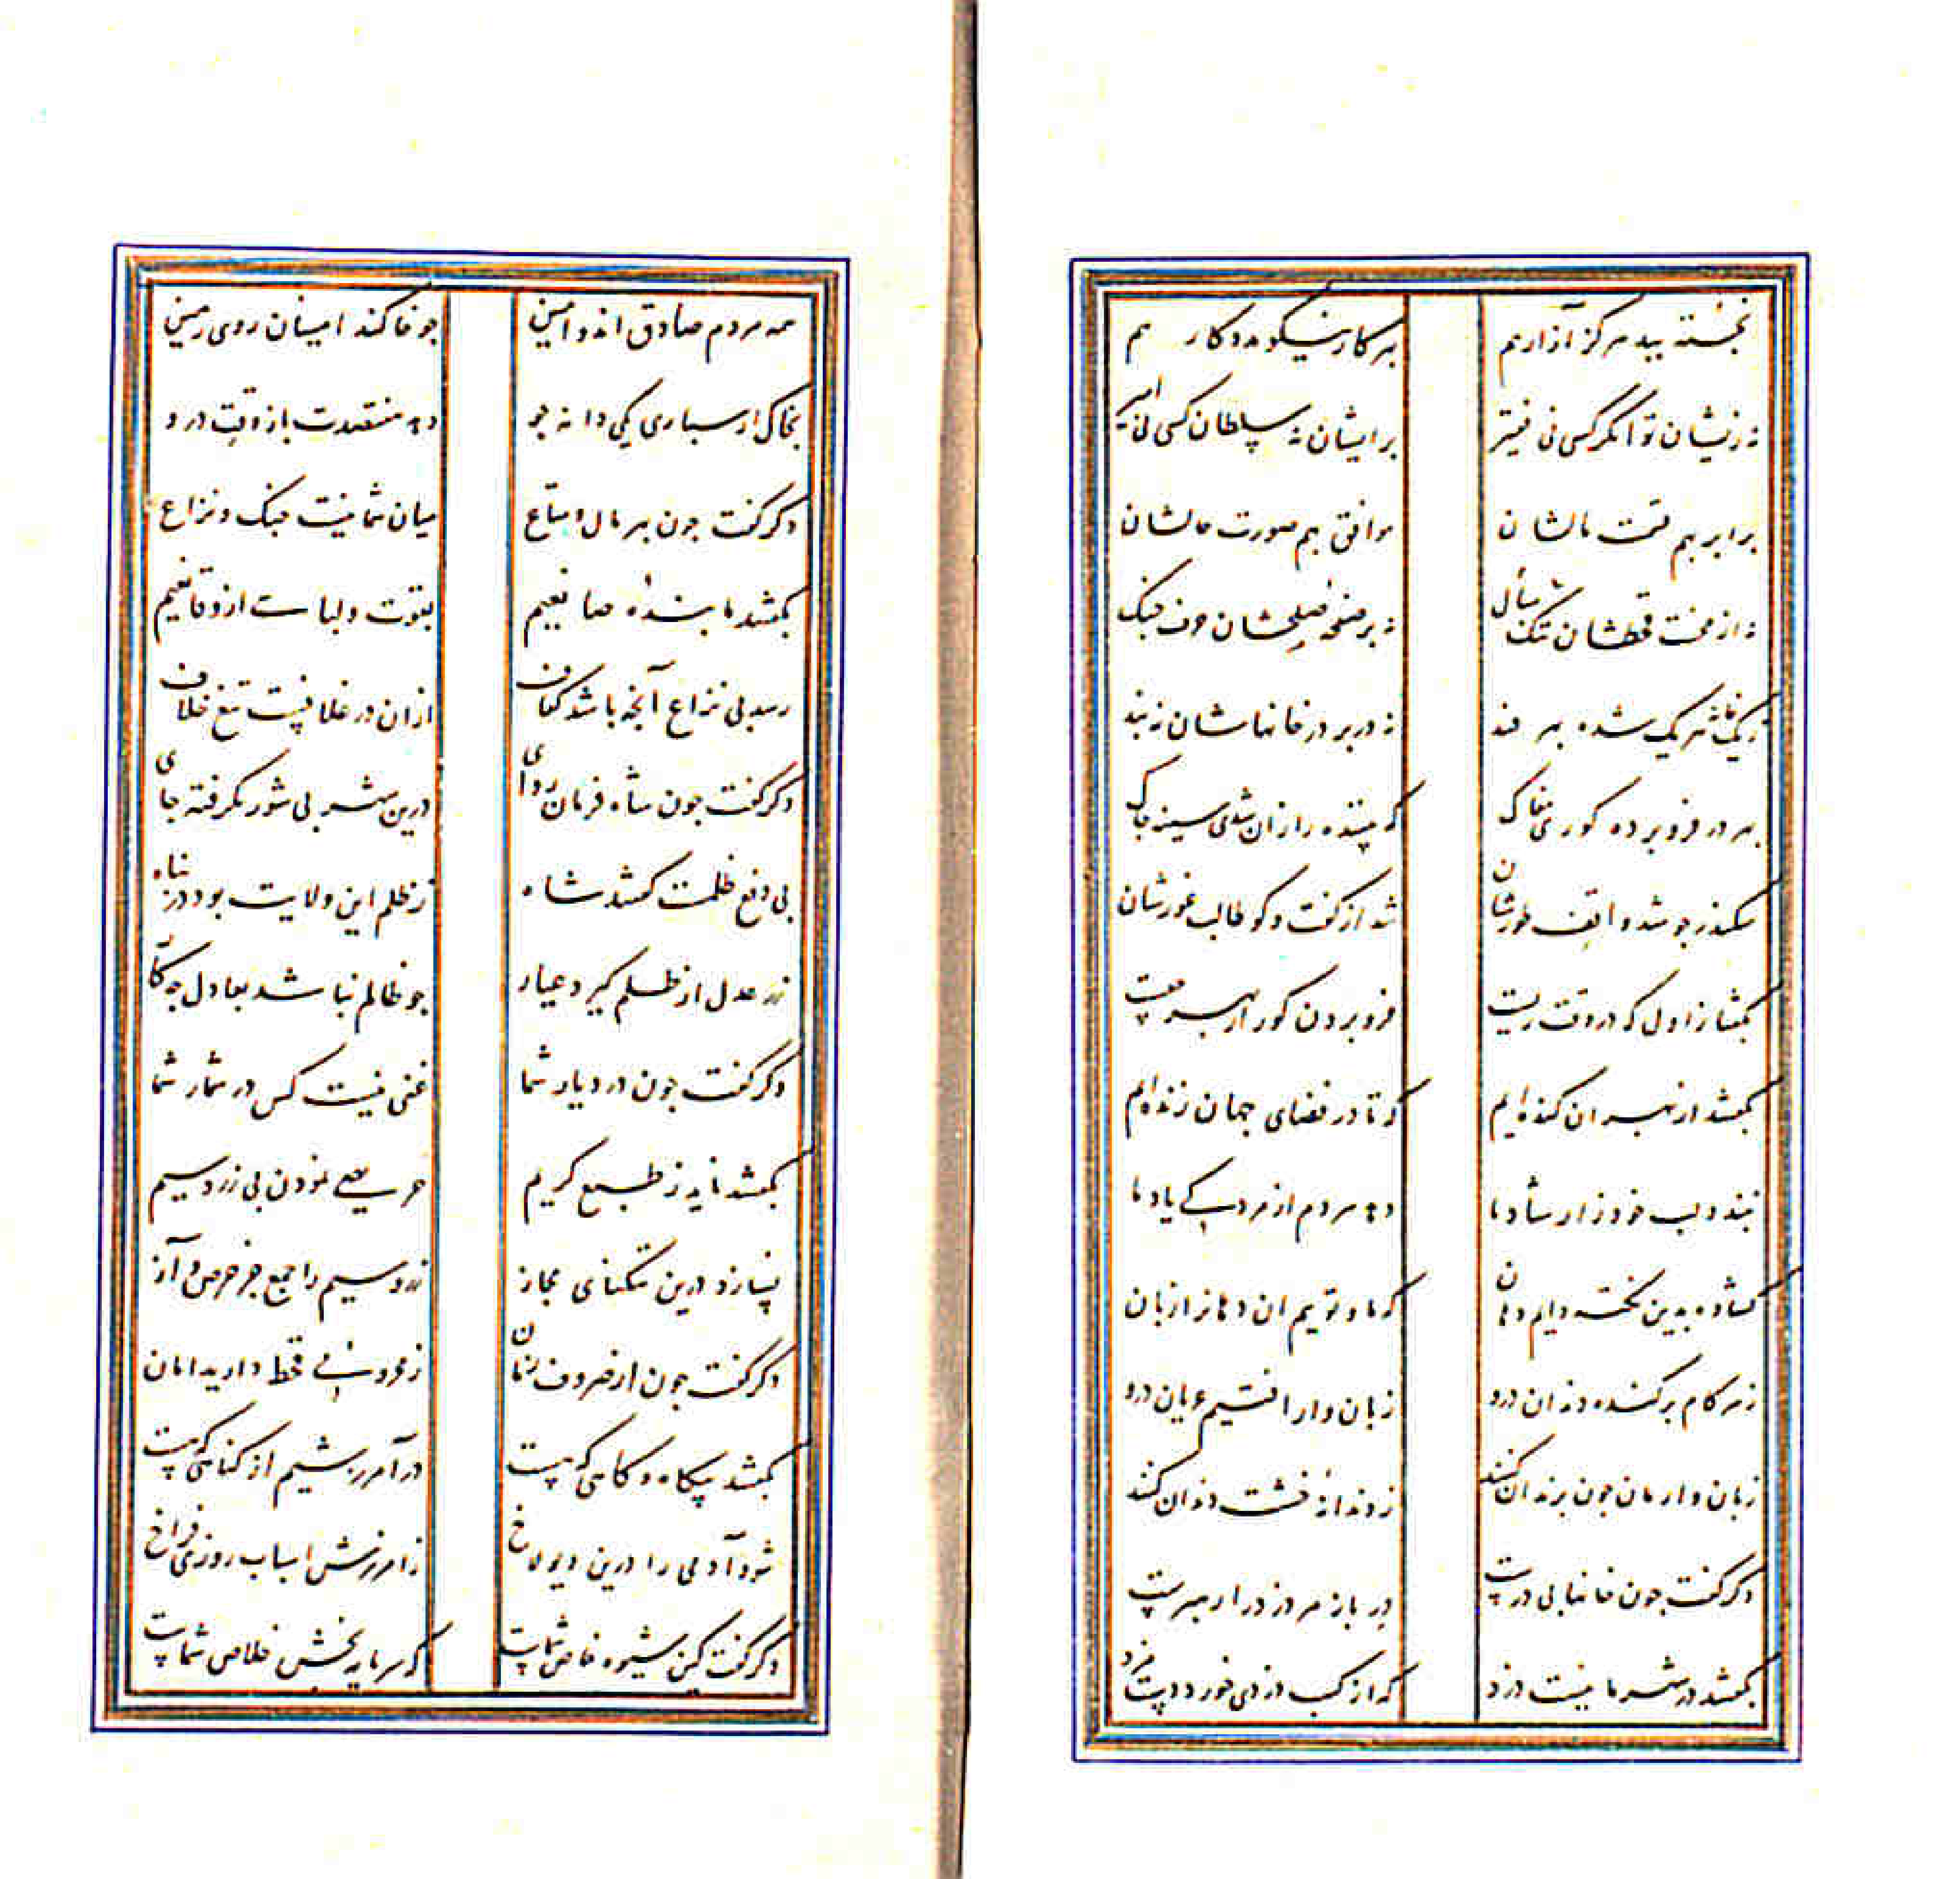 نجسته پید هرگز آزار هم
بهر کار نیکو مددکار هم
نه زیشان توانگر کسی نی فقیر
بر ایشان نه سلطان کسی نی امیر
برابر بهم قسمت مالشان
موافق بهم صورت حالشان
نه از محنت قحطشان تنک سال
نه بر صفحه صلحشان حرف جنک
یکایک شریک شده بهر قند
نه در بر در خانهاشان نه بند
بهر در فرو برده کوری مغاک
که بیننده را زان شدی سینه چاک
سکندر چو شد واقف طورشان
شد از گفت و کو طالب غورشان
بگفتا ز اول که در وقت زیست
فرو بردن کور از بهر چیست
بگفتند از بهر ان کنده ایم
که تا در فضای جهان زنده ایم
نبندد لب خود ز ارشاد ما
دهد مردم از مردن یاد ما
کشاده بدین نکته دایم دهان
که ما و توییم ان دهانرا زبان
زهر کام برکنده دندان درو
زبان وار افتیم عریان درو
زبان وارمان چون بزندان کنند
ز دندانه خشت دندان کنند
دکر گفت چون خانها بی درست
در باز مر دزد را رهبرست
بگفتند در شهر ما نیست دزد
که از کسب دزدی خورد دست مزد
همه مردم صادق اند و امین
جو خاکند امینان روی زمین
بخاک ار سپاری یکی دانه جو
دهد هفتصدت باز وقت درو
دکر گفت چون بهر مال و متاع
میان شما نیست جنک و نزاع
بگفتند ما بنده صانعیم
بقوت و لباست ازو قانعیم
رسد بی نزاع آنچه باشد کفاف
ازان در غلافیست تیغ خلاف
دکر گفت چون شاه فرمان روای
درین شهر بی شور نکرفته جای
پی دفع ظلمت گفتند شاه
ز ظلم این ولایت بود در پناه
زر عدل از ظلم گیرد عیار
چو ظالم نباشد بعادل چه کار
دکر گفت چون در دیار شما
غنی نیست کس در شمار شما
بگفتند ناید ز طبع کریم
حریصی نمودن پی زر و سیم
نسازد درین تنکنای مجاز
زر و سیم را جمع جز حرص و آز
دکر گفت چون از صروف زمان
ز محرومی قحط دارید امان
بگفتند بیکاه و کاهی که هست
در آمرزشیم از کناهی که هست
شود آدمی را درین دیولاخ
ز آمرزش اسباب روزی فراخ
دکر گفت کین شیوه خاص شماست
که سرمایه بخش خلاص شماست